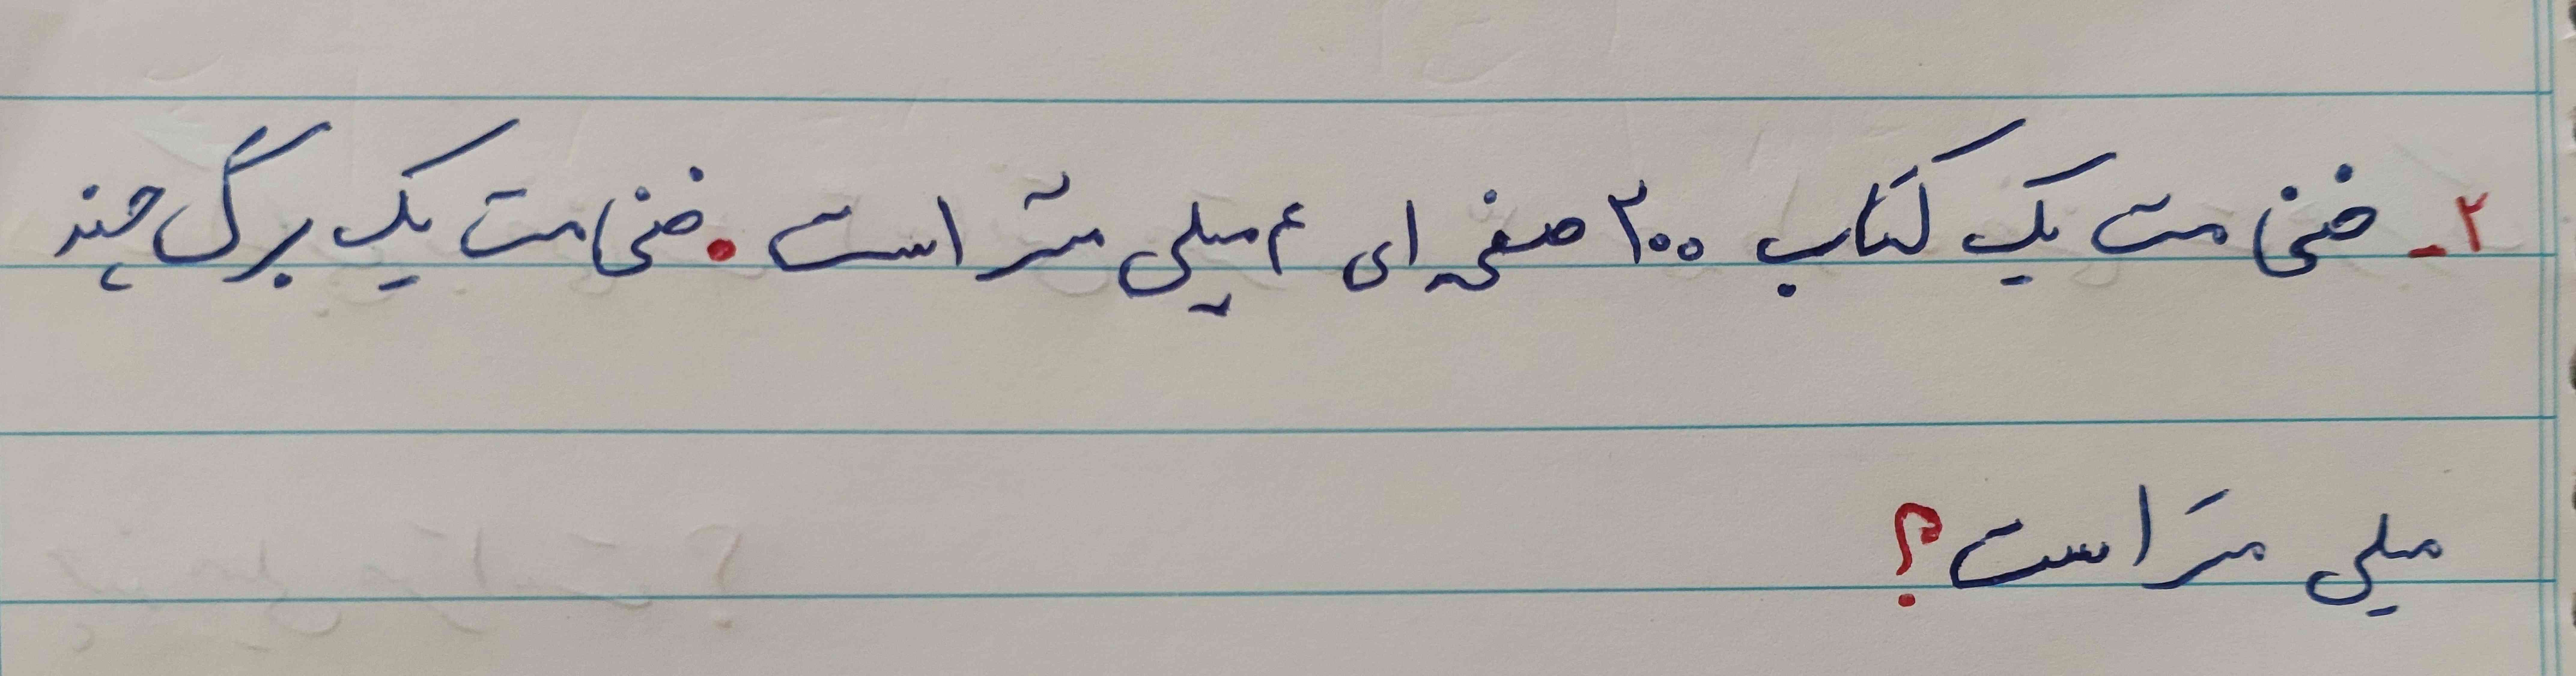 ۲- ضخامت یک کتاب ۲۰۰ صفحه ای ۴ میلی متر است. ضخامت یک برگ چند
میلی متر است؟